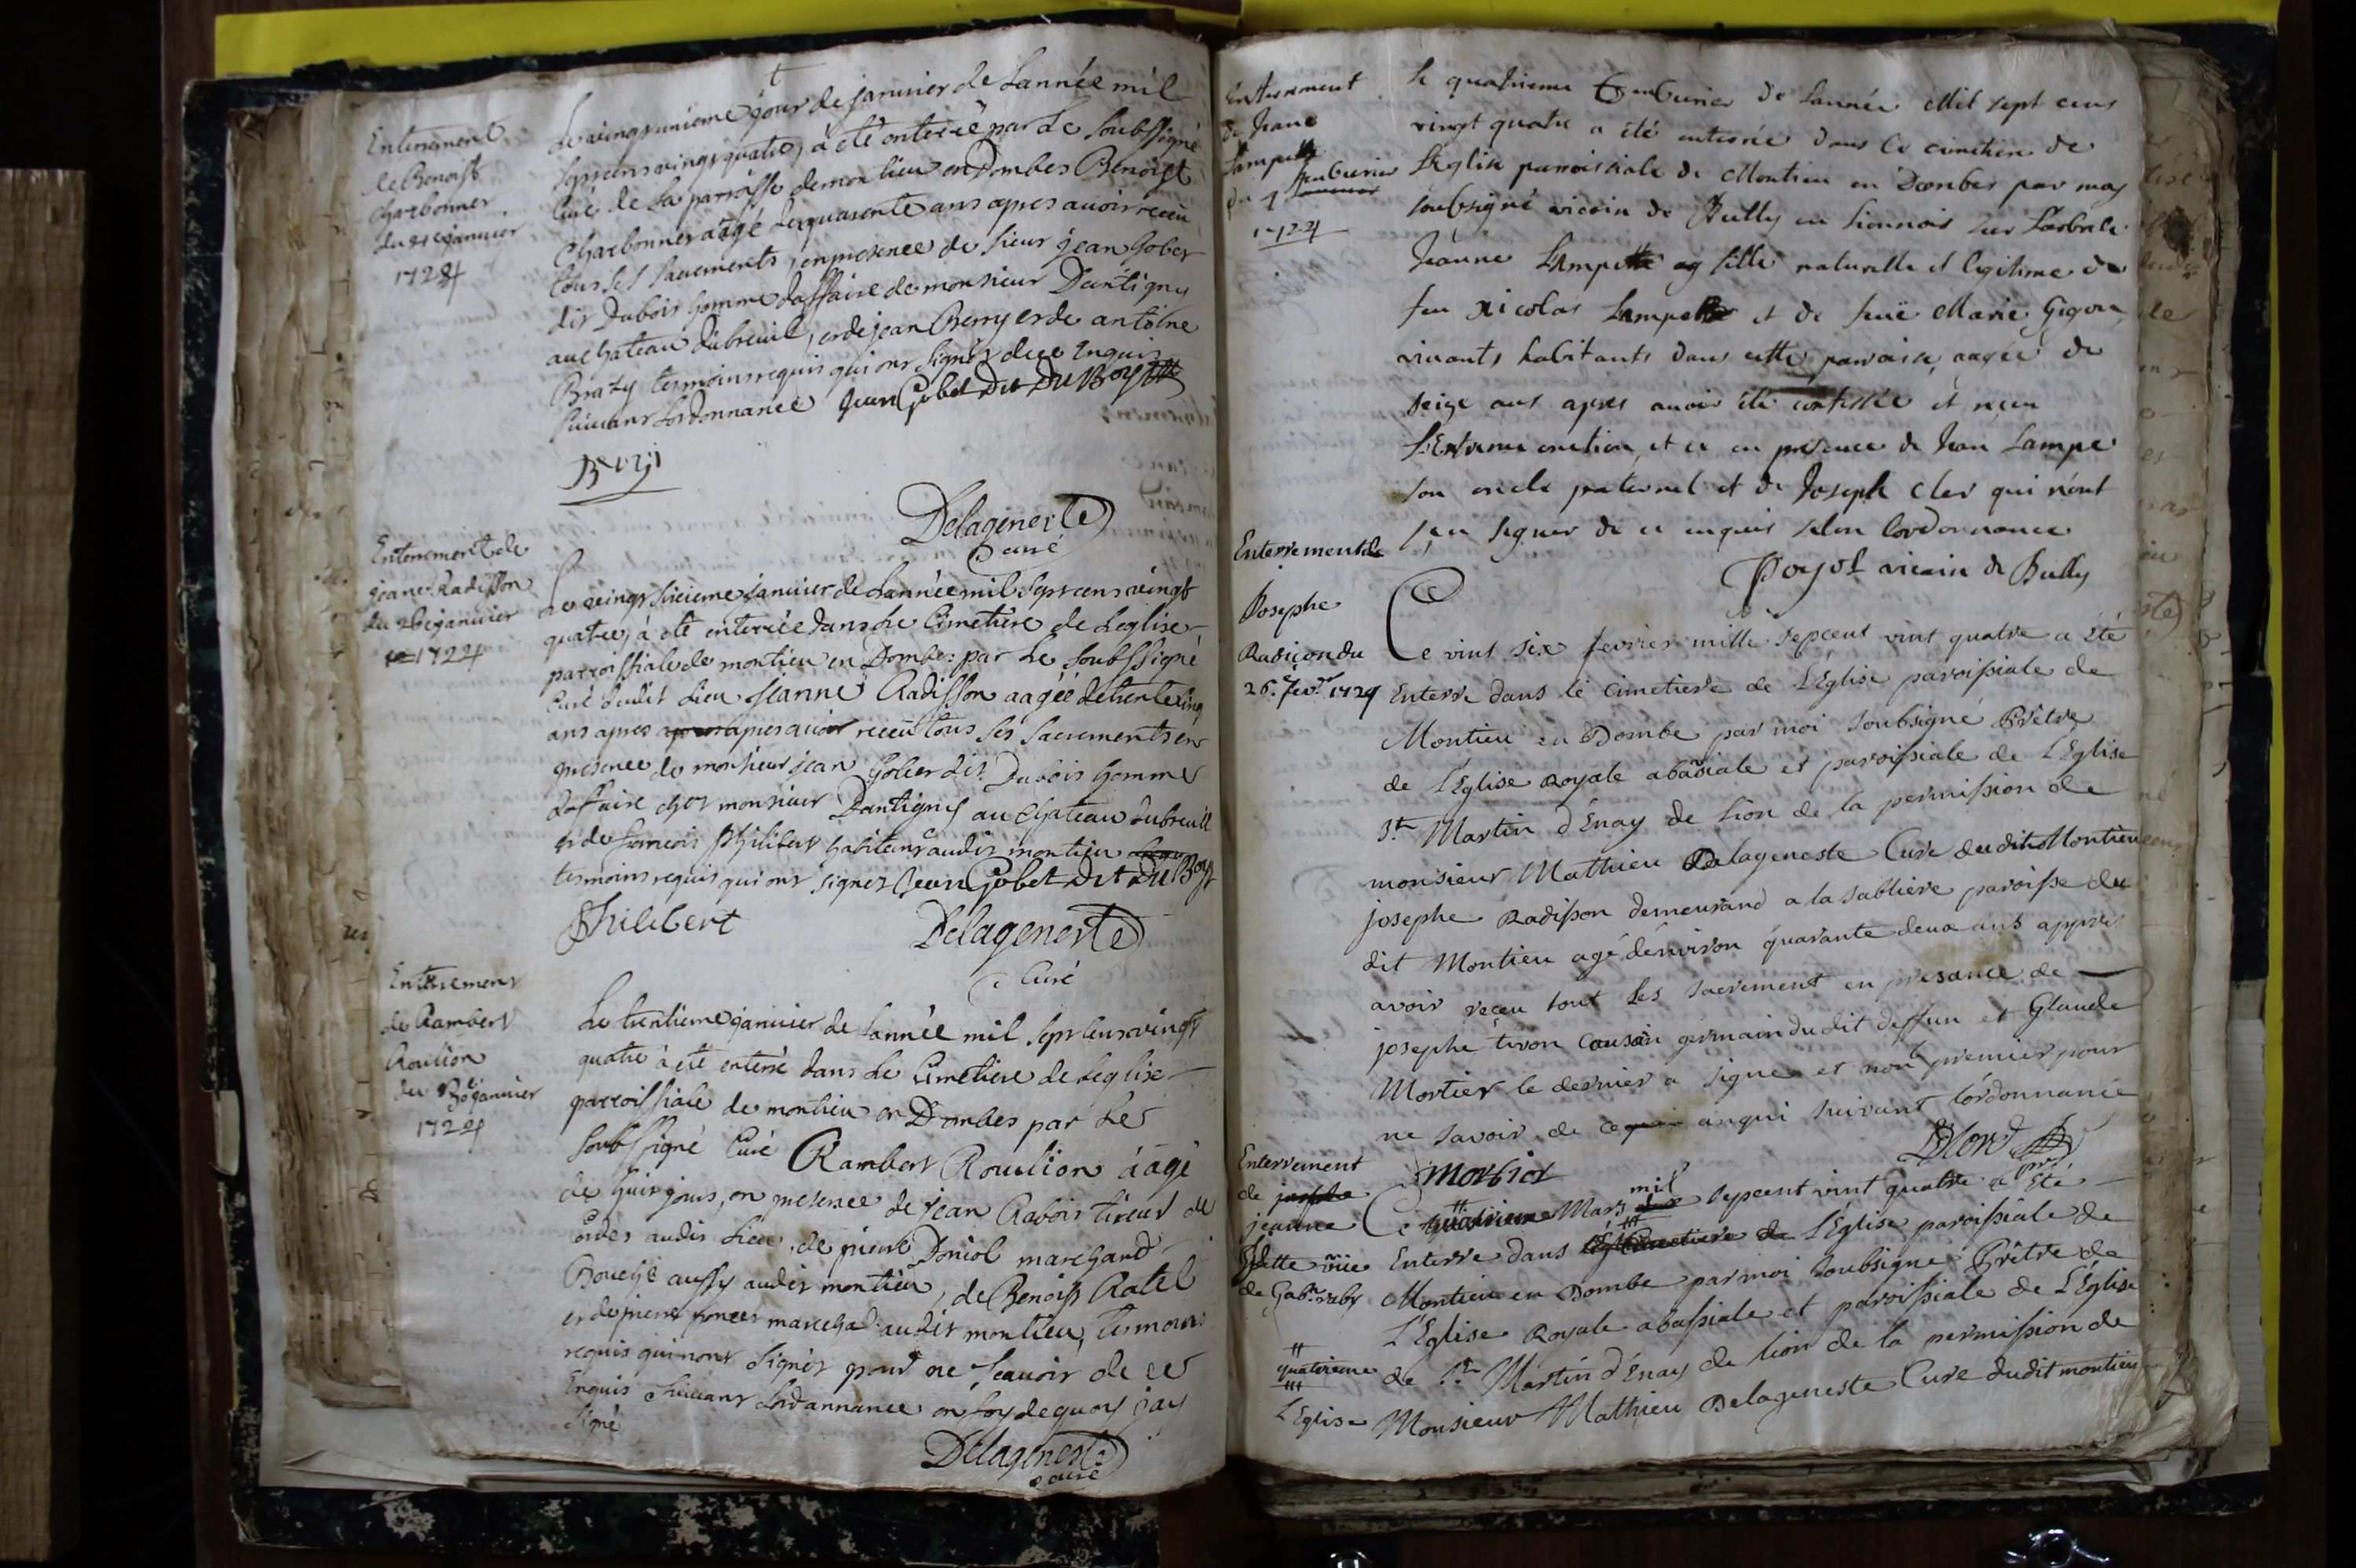 Enterrement
de Benoist
charbonner
du 21e janvier
1724
Le vingt unieme jour de janvier de Lannée mil
sept cens vingt quatre, à été enterré par Le Soubssigné
Curé de La parroisse de montieu en Dombes Benoist
Charbonner aagé de quarente ans apres avoir receu
tous ses sacrements, en presence de sieur jean Gobet
dit Dubois homme daffaire de monsieur Dantigny
au chateau dubreuil, et de jean Berry et de antoine
Brazy tesmoins requis qui ont signés de ce Enquis
suivant Lordonnance Jean Gobet Dit Du Boy
Delageneste
curé
Enterrement de
jeane Radisson
du 26e janvier
1724
Le vingt sixieme janvier de Lannée mil sept cens vingt
quatre, à eté enterrée dans Le Cimetiere de Leglise
parroissiale de montieu en Dombes par Le Soubssigné
Curé dudit Lieu Jeanne Radisson aagée de trente cinq
ans apres apres avoir receu tous ses sacrements en
presence de monsieur jean Gobet dit Dubois homme
daffaire chez monsieur Dantigny au chateau dubreuil
et de francois Philibert habitant audit montieu
tesmoins requis qui ont signez Jean Gobet Dit Du Boy
Philibert
Delageneste
Curé
Enterrement
de Rambert
Roulion
du 30e janvier
1724
Le trentieme janvier de Lannée mil sept cens vingt
quatre à eté enterré dans Le Cimetiere de Leglise
parroissiale de montieu en Dombes par Le
soubssigné Curé Rambert Roulion aagé
de huit jours, en presence de jean Rabois tireur de
cordes audit Lieu, de pierre Doriol marchand
Bouché aussy audit montieu, de Benoist Ratel
et de pierre poncet marechal audit montieu, tesmoins
requis qui nont signés pour ne Scavoir de ce
Enquis suivant Lordannance en foy de quoy jay
signé
Delageneste
curé
Enterrement
de Jeane
Lampe
du 4
1724
le quatrieme de Lannée Mil sept cens
vingt quatre a été enterrée dans le cimetiere de
L'Eglise parroissiale de Montieu en Dombes par moy
soubsigné vicain de Bully en Lionnois sur Larbrele
Jeanne Lampe fille naturelle et legitime de
feu Nicolas Lampe et de feuë Marie Gigou
vivants habitants dans cette parroisse, aagée de
seize ans apres avoir été confessée et reçeu
L'Extreme onction, et ce en presence de Jean Lampe
son oncle paternel et de Joseph cler qui n'ont
sçu signer de ce enquis selon l'ordonnance
Poyol vicain de Bully
Enterrement de
Josephe
Radiçon du
26. fevr 1724
Ce vint six fevrier mille sepcent vint quatre a été
Enterre dans le cimetiere de L'Eglise paroissiale de
Montieu en Dombe par moi soubsigné Prêtre
de L'Eglise Royale abassiale et paroissiale de L'Eglise
St Martin d'Enay de Lion de la permission de
monsieur Mathieu Delageneste Cure du dit Montieu
josephe Radisson demeurand a la sabliere paroisse du
dit Montieu agé d'environ quarante deux ans appres
avoir reçeu tout les sacrement en presance de
josephe tivon Cousin germain du dit deffun et Glaude
Mortier le dernier a signe et non le premier pour
ne savoir de ce anqui suivant l'ordonnance
mortier
Enterrement
de josephe
jeanne
de
quaterieme
L'Eglise
Ce quatrieme Mars mil sepcent vint quatre a été
Enterre dans L'Eglise paroissiale de
Montieu en Dombe par moi soubsigne Prêtre de
L'Eglise Royale abassiale et paroissiale de L'Eglise
de St Martin d'Enay de lion de la permission de
Monsieur Mathieu Delageneste Cure dudit montieu